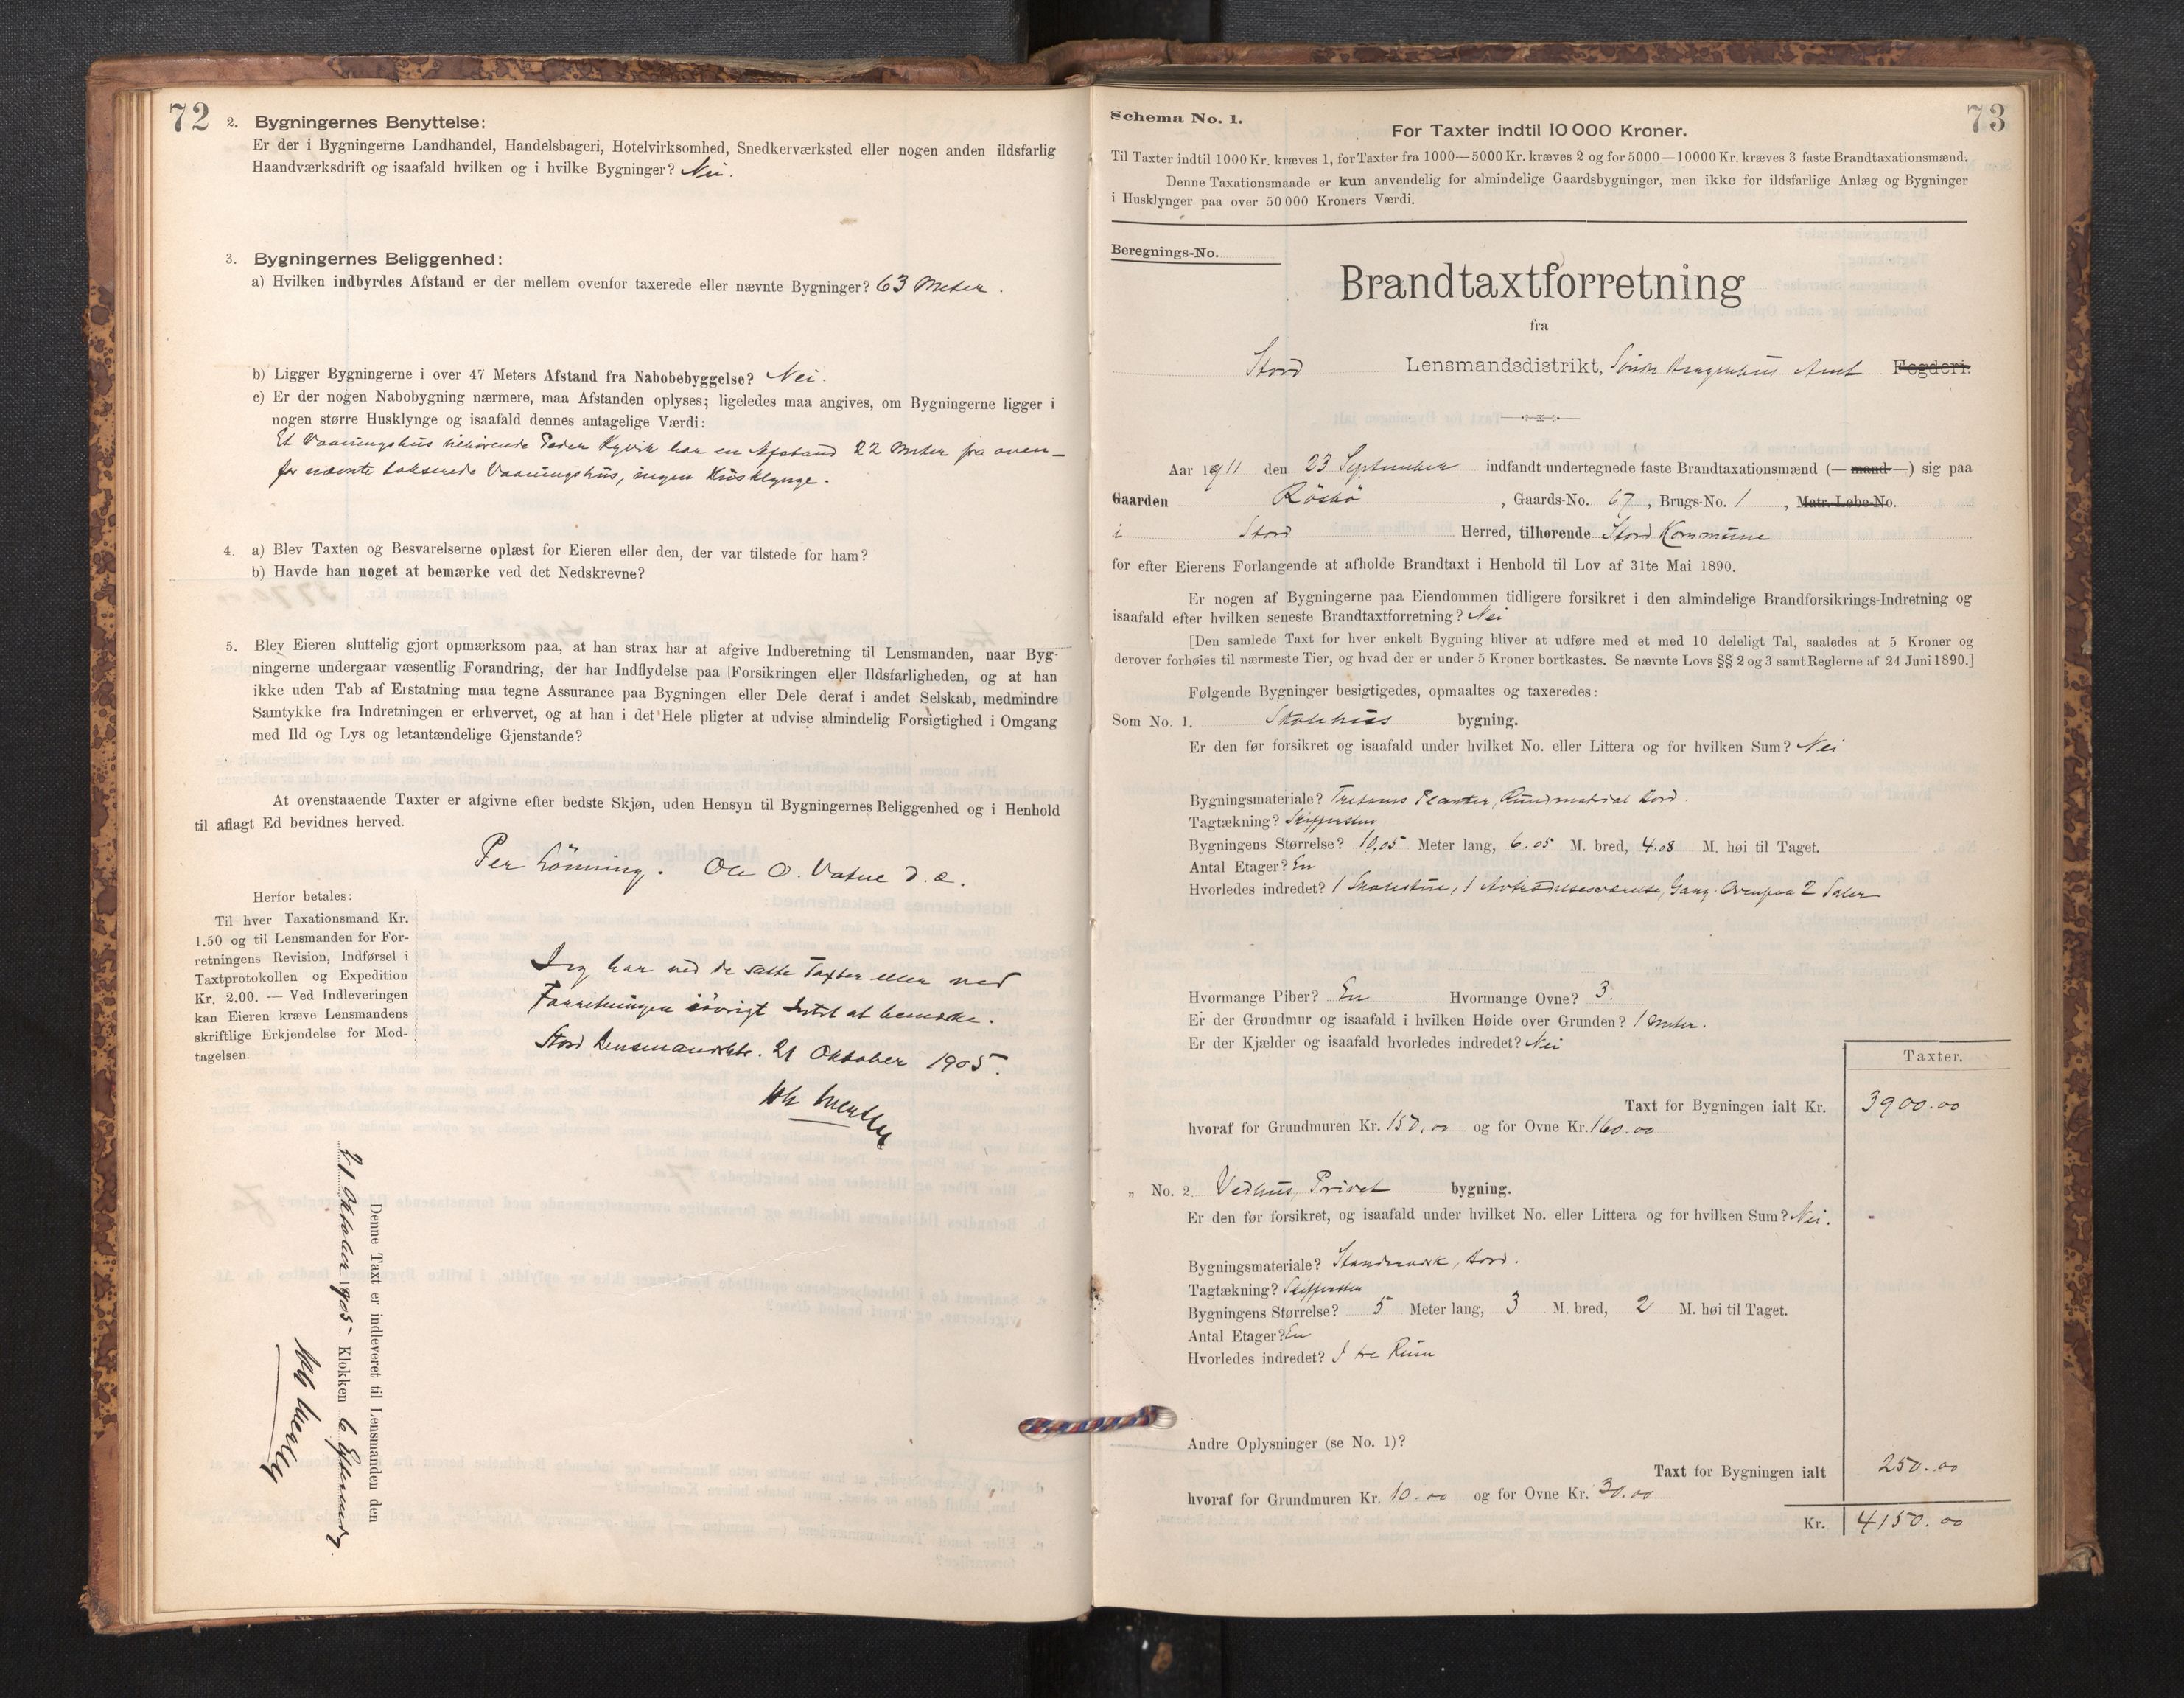 72
2. Bygningernes Benyttelse:
Er der i Bygningerne Landhandel, Handelsbageri, Hotelvirksomhed, Snedkerværksted eller nogen anden ildsfarlig
Haandværksdrift og isaafald hvilken og i hvilke Bygninger? Nei.
3. Bygningernes Beliggenhed:
a) Hvilken indbyrdes Afstand er der mellem ovenfor taxerede eller nævnte Bygninger? 63 Meter.
b) Ligger Bygningerne i over 47 Meters Afstand fra Nabobebyggelse? Nei.
c) Er der nogen Nabobygning nærmere, maa Afstanden oplyses; ligeledes maa angives, om Bygningerne ligger i
nogen større Husklynge og isaafald dennes antagelige Værdi:
Et Vaaningshus tilhørende Peder Kyvik har en Afstand 22 Meter fra oven-
for nævnte takserede Vaaningshus, ingen Husklynge.
4. a) Blev Taxten og Besvarelserne oplæst for Eieren eller den, der var tilstede for ham?
b) Havde han noget at bemærke ved det Nedskrevne?
5. Blev Eieren sluttelig gjort opmærksom paa, at han strax har at afgive Indberetning til Lensmanden, naar Byg-
ningerne undergaar væsentlig Forandring, der har Indflydelse paa Forsikringen eller Ildsfarligheden, og at han
ikke uden Tab af Erstatning maa tegne Assurance paa Bygningen eller Dele deraf i andet Selskab, medmindre
Samtykke fra Indretningen er erhvervet, og at han i det Hele pligter at udvise almindelig Forsigtighed i Omgang
med Ild og Lys og letantændelige Gjenstande?
At ovenstaaende Taxter er afgivne efter bedste Skjøn, uden Hensyn til Bygningernes Beliggenhed og i Henhold
til aflagt Ed bevidnes herved.
Per Lönning. Ole O. Vatne
Herfor betales:
Til hver Taxationsmand Kr.
1.50 og til Lensmanden for For-
retningens Revision, Indførsel i
Taxtprotokollen og Expedition
Kr. 2.00. — Ved Indleveringen
kan Eieren kræve Lensmandens
skriftlige Erkjendelse for Mod-
tagelsen.
Jeg har ved de satte Taxter eller ved
Forretningen iövrigt Intet at bemærke.
Stord 21 Oktober 1905.
Denne Taxt er indleveret til Lensmanden den
21 Oktober 1905 Klokken 6
73
Schema No. 1.
For Taxter indtil 10 000 Kroner.
Til Taxter indtil 1000 Kr. kræves 1, for Taxter fra 1000—5000 Kr. kræves 2 og for 5000—10000 Kr. kræves 3 faste Brandtaxationsmænd.
Denne Taxationsmaade er kun anvendelig for almindelige Gaardsbygninger, men ikke for ildsfarlige Anlæg og Bygninger
i Husklynger paa over 50 000 Kroners Værdi.
Beregnings-No.
Brandtaxtforretning
fra
Stord Lensmandsdistrikt, Söndre Bergenhus Amt Fogderi.
Aar 1911 den 23 September indfandt undertegnede faste Brandtaxationsmænd (— mand —) sig paa
Gaarden , Gaards-No. 67, Brugs-No. 1, Matr.-Løbe-No.
i Stord Herred, tilhørende Stord Kommune
for efter Eierens Forlangende at afholde Brandtaxt i Henhold til Lov af 31te Mai 1890.
Er nogen af Bygningerne paa Eiendommen tidligere forsikret i den almindelige Brandforsikrings-Indretning og
isaafald efter hvilken seneste Brandtaxtforretning? Nei
[Den samlede Taxt for hver enkelt Bygning bliver at udføre med et med 10 deleligt Tal, saaledes at 5 Kroner og
derover forhøies til nærmeste Tier, og hvad der er under 5 Kroner bortkastes. Se nævnte Lovs §§ 2 og 3 samt Reglerne af 24 Juni 1890.]
Følgende Bygninger besigtigedes, opmaaltes og taxeredes:
Som No. 1. Skolehus bygning.
Er den før forsikret og isaafald under hvilket No. eller Littera og for hvilken Sum? Nei
Bygningsmateriale? Tretoms Planker, Bord.
Tagtækning? Skiffersten
Bygningens Størrelse? 10,05 Meter lang, 6.05 M. bred, 4.08 M. høi til Taget.
Antal Etager? En
Hvorledes indredet? 1 Skolestue, 1 Aftrædelsesværelse, Gang. Ovenpaa 2 Saler
Hvormange Piber? En Hvormange Ovne? 3.
Er der Grundmur og isaafald i hvilken Høide over Grunden? 1 Meter.
Er der Kjælder og isaafald hvorledes indredet? Nei
Taxter.
Taxt for Bygningen ialt Kr. 3900.00
hvoraf for Grundmuren Kr. 150,00 og for Ovne Kr. 160.00
„ No. 2 Vedhus, Privet bygning.
Er den før forsikret, og isaafald under hvilket No. eller Littera og for hvilken Sum? Nei.
Bygningsmateriale? Standverk, Bord.
Tagtækning? Skiffersten
Bygningens Størrelse? 5 Meter lang, 3 M. bred, 2 M. høi til Taget.
Antal Etager? En
Hvorledes indredet? I tre Rum
Andre Oplysninger (se No. 1)?
Taxt for Bygningen ialt 250.00
hvoraf for Grundmuren Kr. 10.00 og for Ovne Kr. 30.00
Kr. 4150.00